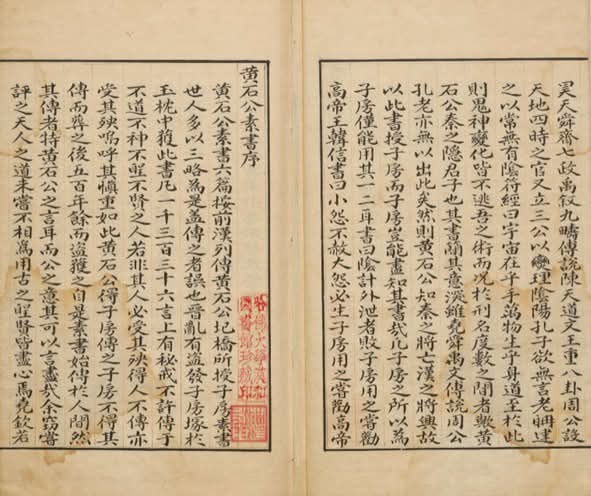 黄石公素書序
黄石公素書六篇按前漢列傳黄石公圯橋所授子房素書
世人多以三略為是盖傳之者誤也晉亂有盗發子房塚於
玉枕中獲此書凡一千三百三十六言上有秘戒不許傳于
不道不神不聖不賢之人若非其人必受其殃得人不傳亦
受其殃嗚呼其慎重如此黄石公得子房傳之子房不得其
傳而葬之後五百年餘而盗獲之自是素書始傳於人間然
其傳者特黄石公之言耳而公之意其可以言盡哉余竊嘗
評之天人之道未嘗不相為用古之聖賢皆盡心焉堯欽若
哈佛大學漢和
圖書館珍藏印
昊天舜齊七政禹叙九疇傳説陳天道文王重八卦周公設
天地四時之官又立三公以燮理陰陽孔子欲無言老聃建
之以常無有陰符經曰宇宙在乎手萬物生乎身道至於此
則鬼神變化皆不逃吾之術而况於刑名度數之間者歟黄
石公秦之隐君子也其書簡其意深雖堯舜禹文傳説周公
孔老亦無以出此矣然則黄石公知秦之將亡漢之將興故
以此書授子房而子房豈能盡知其書哉凡子房之所以為
子房僅能用其一二耳書曰陰計外泄者敗子房用之嘗勸
高帝王韓信書曰小怨不赦大怨必生子房用之嘗勸高帝